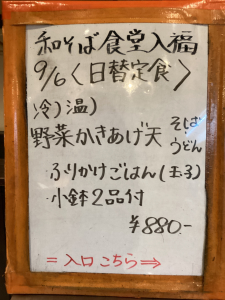 和そば食堂入福
9/6〈日替定食〉
冷)温)
野菜かきあげ天 そば うどん
・ふりかけごはん(玉子)
・小鉢2品付
¥880.-
=入口こちら⇒